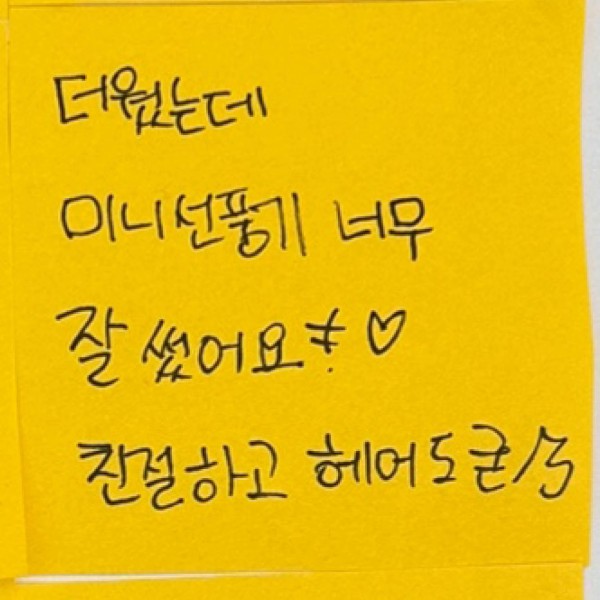 더웠는데
미니선풍기 너무
잘 썼어요!! ♡
친절하고 헤어도 굳/♨